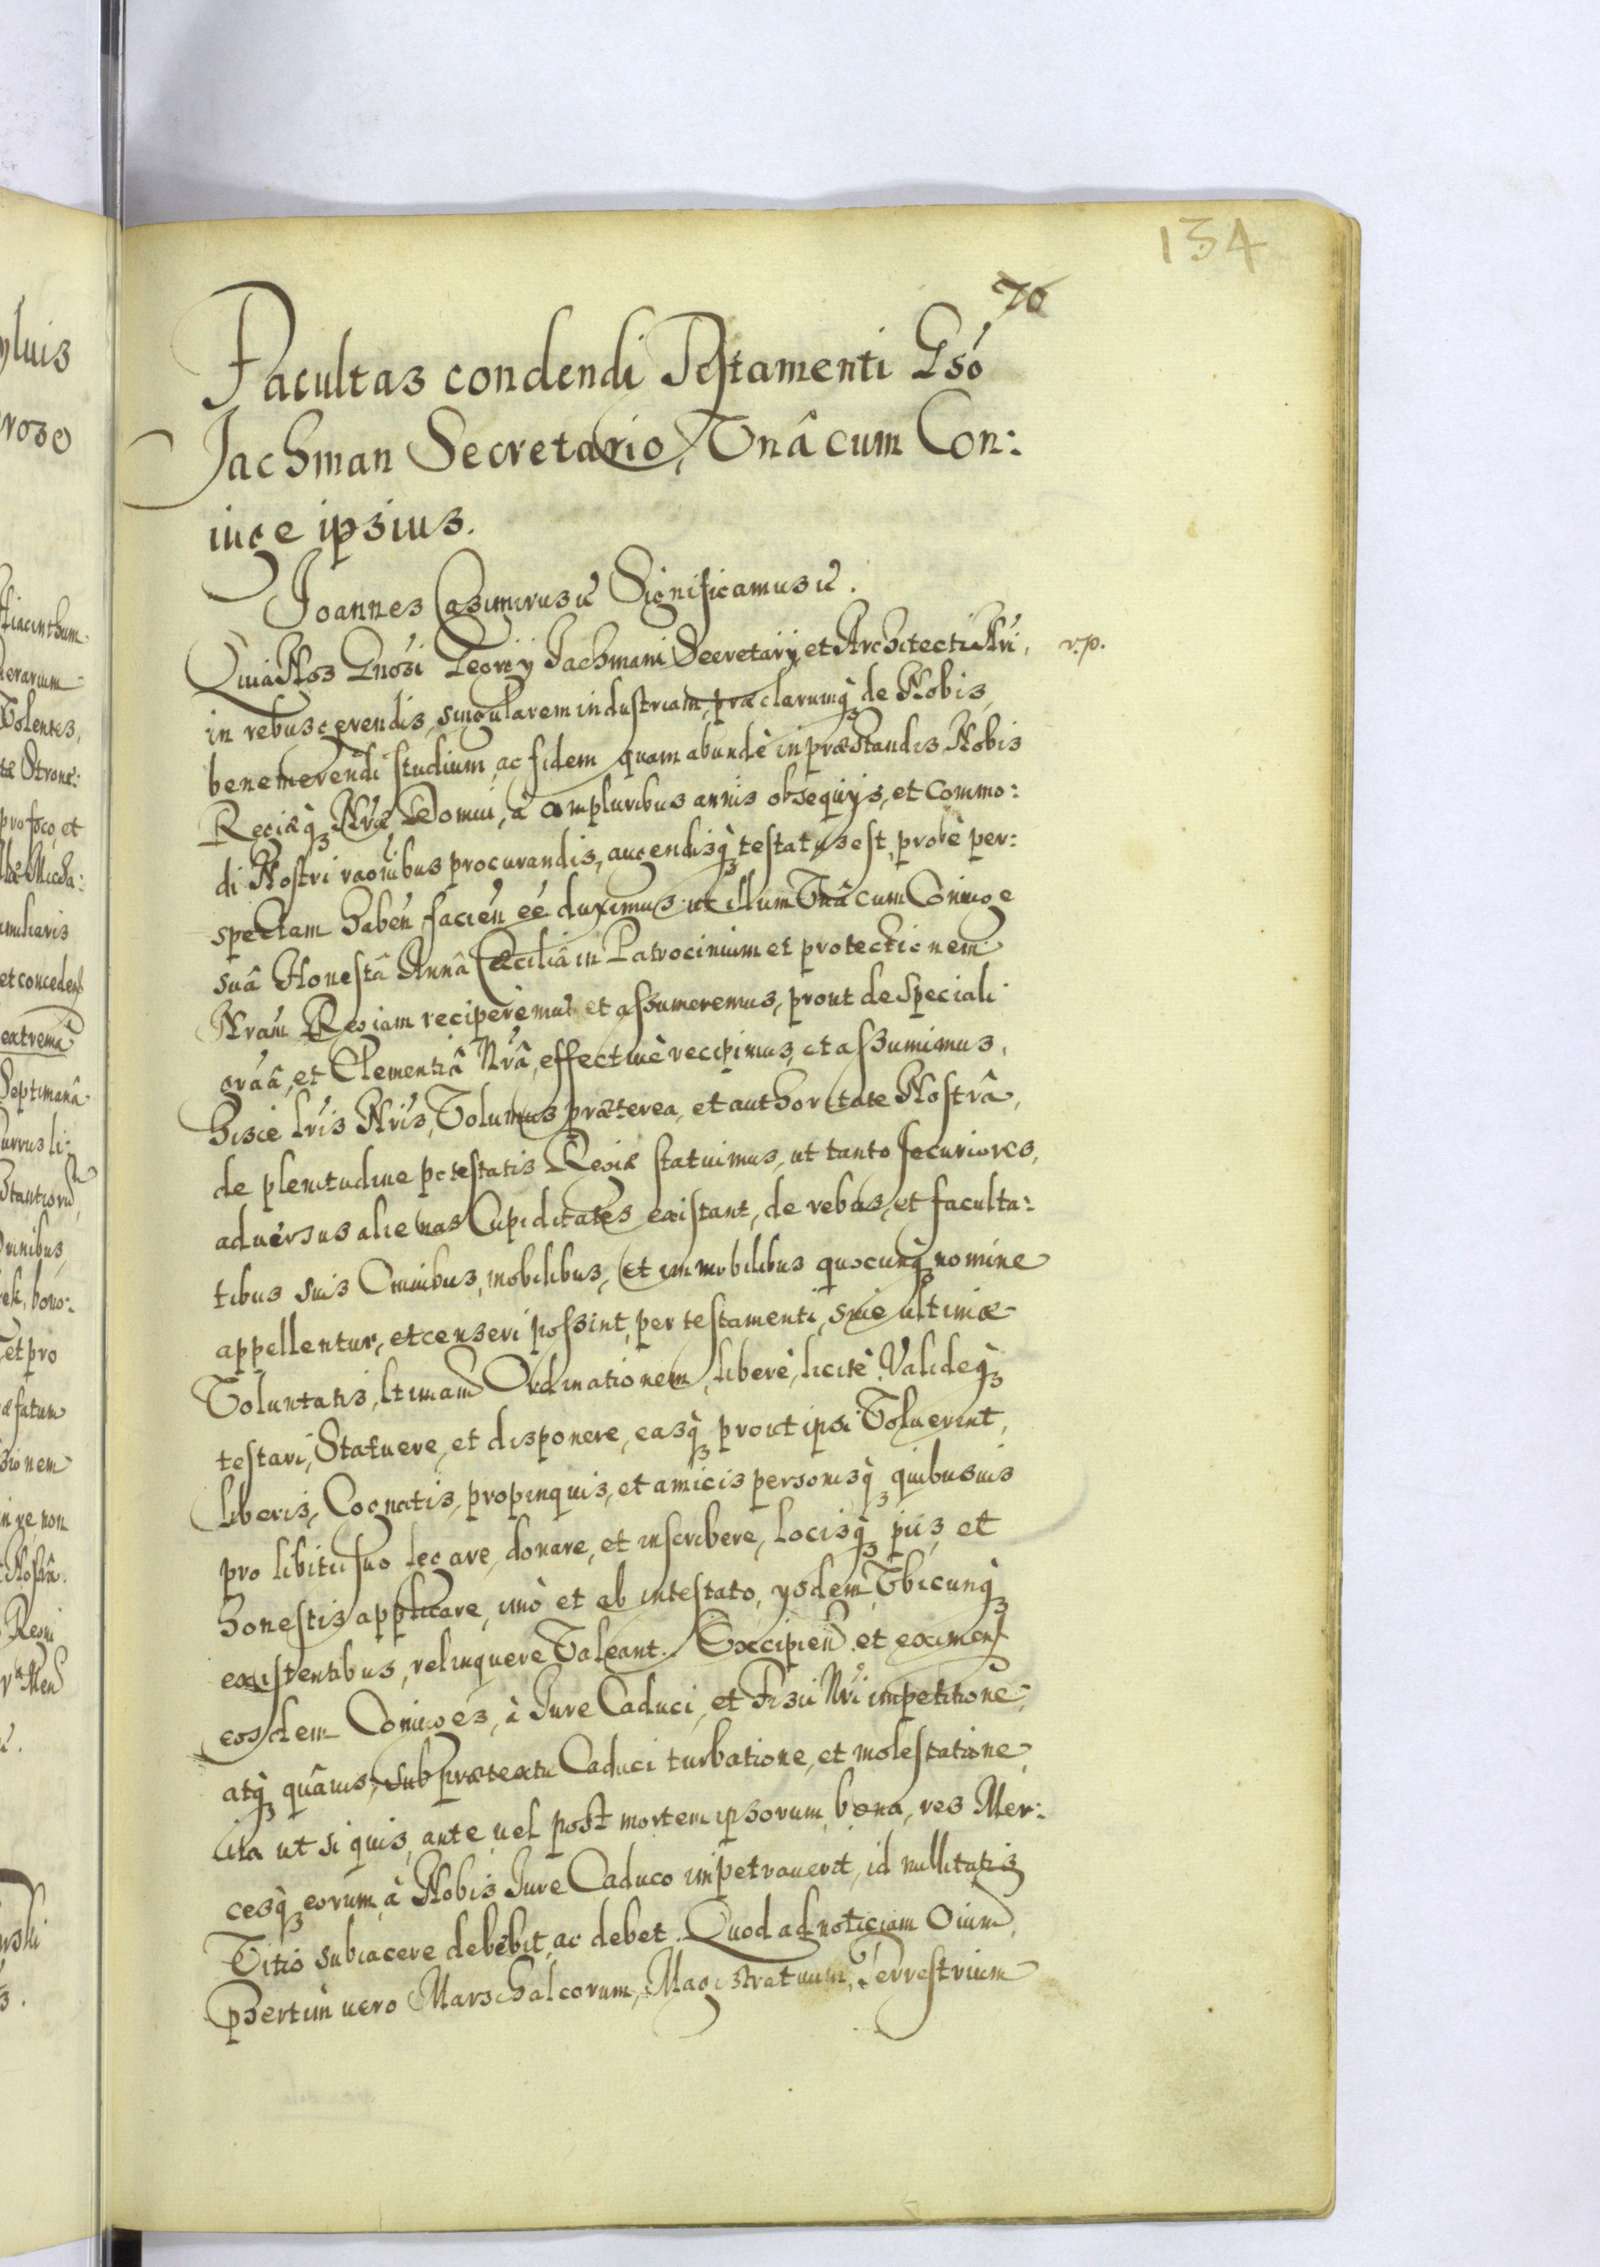 134
70
Facultas condendi Testamenti Gso
Jachman Secretario, Vnâ cum Con:
iuge ipsius.
Joannes Casimirus &c Significamus &c.
Quia Nos Gnosi Georgij Jachmani Secretarij et Architecti Nri, v.p.
in rebus gerendis, singularem industriam, præclarumq de Nobis,
benemerendi studium, ac fidem quam abundè in præstandis Nobis
Regiæq Nræ Domui, à compluribus annis obsequijs, et Commo:
di Nostri raonibus procurandis, augendisq testatus est, probè per:
spectam haben, facien ee duximus ut illum Vnâ cum Coniuge
suâ Honestâ Annâ Cæciliâ in Patrocinium et protectionem
Nram Regiam reciperemus et assumeremus, prout de speciali
graâ, et Clementiâ Nrâ, effectiuè recipimus, et assumimus,
hisce lris Nris, Volumus præterea, et authoritate Nostrâ,
de plenitudine potestatis Regiæ statuimus, ut tanto securiores,
aduersus alienas Cupiditates existant, de rebus, et faculta:
tibus suis Omnibus, mobilibus, et immobilibus quocunq nomine
appellentur, et censeri possint, per testamenti, siue ultimæ
Voluntatis, ltimam Ordinationem, liberè, licitè, Valideq
testari, Statuere, et disponere, easq prout ipsi Voluerint,
liberis, Cognatis, propinquis, et amicis personisq quibusuis
pro libitu suo legare, donare, et inscribere, locisq pijs, et
honestis applicare, imò et ab intestato, ysdem Vbicunq
existentibus, relinquere Valeant. Excipien et eximen
eosdem Coniuges, à Jure Caduci, et Fisci Nri impetitione,
atq quâuis, sub prætextu Caduci turbatione, et molestatione,
ita ut si quis, ante uel post mortem ipsorum, bona, res Mer:
cesq eorum, à Nobis Jure Caduco impetrauerit, id nullitatis
Vitio subiacere debebit, ac debet. Quod ad noticiam Oium,
psertim uero Marschalcorum, Magistratuum, Terrestrium